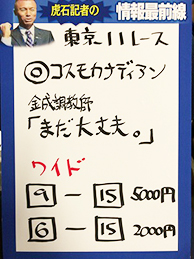 虎石記者の
情報最前線
東京11レース
◎コスモカナディアン
金成調教師
「まだ大丈夫。」
ワイド
9 － 15 5000円
6 － 15 2000円